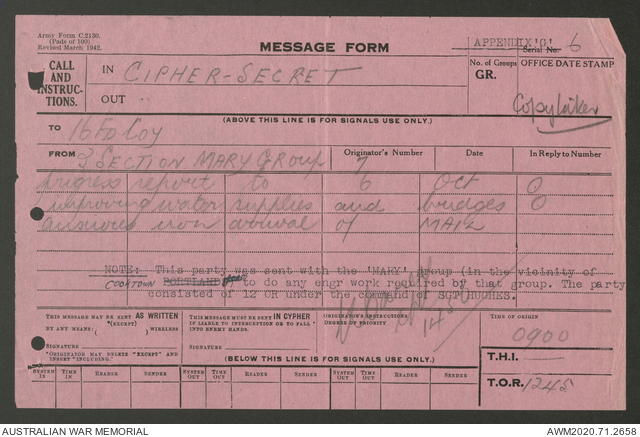 Army Form C.2130.
(Pads of 100)
Revised March 1942.
MESSAGE FORM
APPENDIX 'G'
Serial No. 6
CALL
AND
INSTRUC-
TIONS.
IN CIPHER-SECRET
OUT
No. of Groups
GR.
OFFICE DATE STAMP
Copy taken
(ABOVE THIS LINE IS FOR SIGNALS USE ONLY.)
TO 16 FD COY
FROM 3 SECTION MARY GROUP
Originator's Number 7
Date
In Reply to Number
progress report to 6 Oct 0
improving water supplies and bridges 0
anxious arrival of MAIL
NOTE: This party was sent with the 'MARY' group (in the vicinity of
COOKTOWN PORTLAND to do any engr work required by that group. The party
consisted of 12 OR under the command of SGT HUGHES.
THIS MESSAGE MAY BE SENT AS WRITTEN
(EXCEPT)
BY ANY MEANS ( ) WIRELESS
SIGNATURE
"ORIGINATOR MAY DELETE "EXCEPT" AND
INSERT "INCLUDING."
THIS MESSAGE MUST BE SENT IN CYPHER
IF LIABLE TO INTERCEPTION OR TO FALL
INTO ENEMY HANDS.
SIGNATURE
ORIGINATOR'S INSTRUCTIONS
DEGREE OF PRIORITY
TIME OF ORIGIN
0900
T.H.I.
T.O.R. 1245
(BELOW THIS LINE IS FOR SIGNALS USE ONLY.)
SYSTEM IN TIME IN READER SENDER SYSTEM OUT TIME OUT READER SENDER SYSTEM OUT TIME OUT READER SENDER
AUSTRALIAN WAR MEMORIAL
AWM2020.71.2658